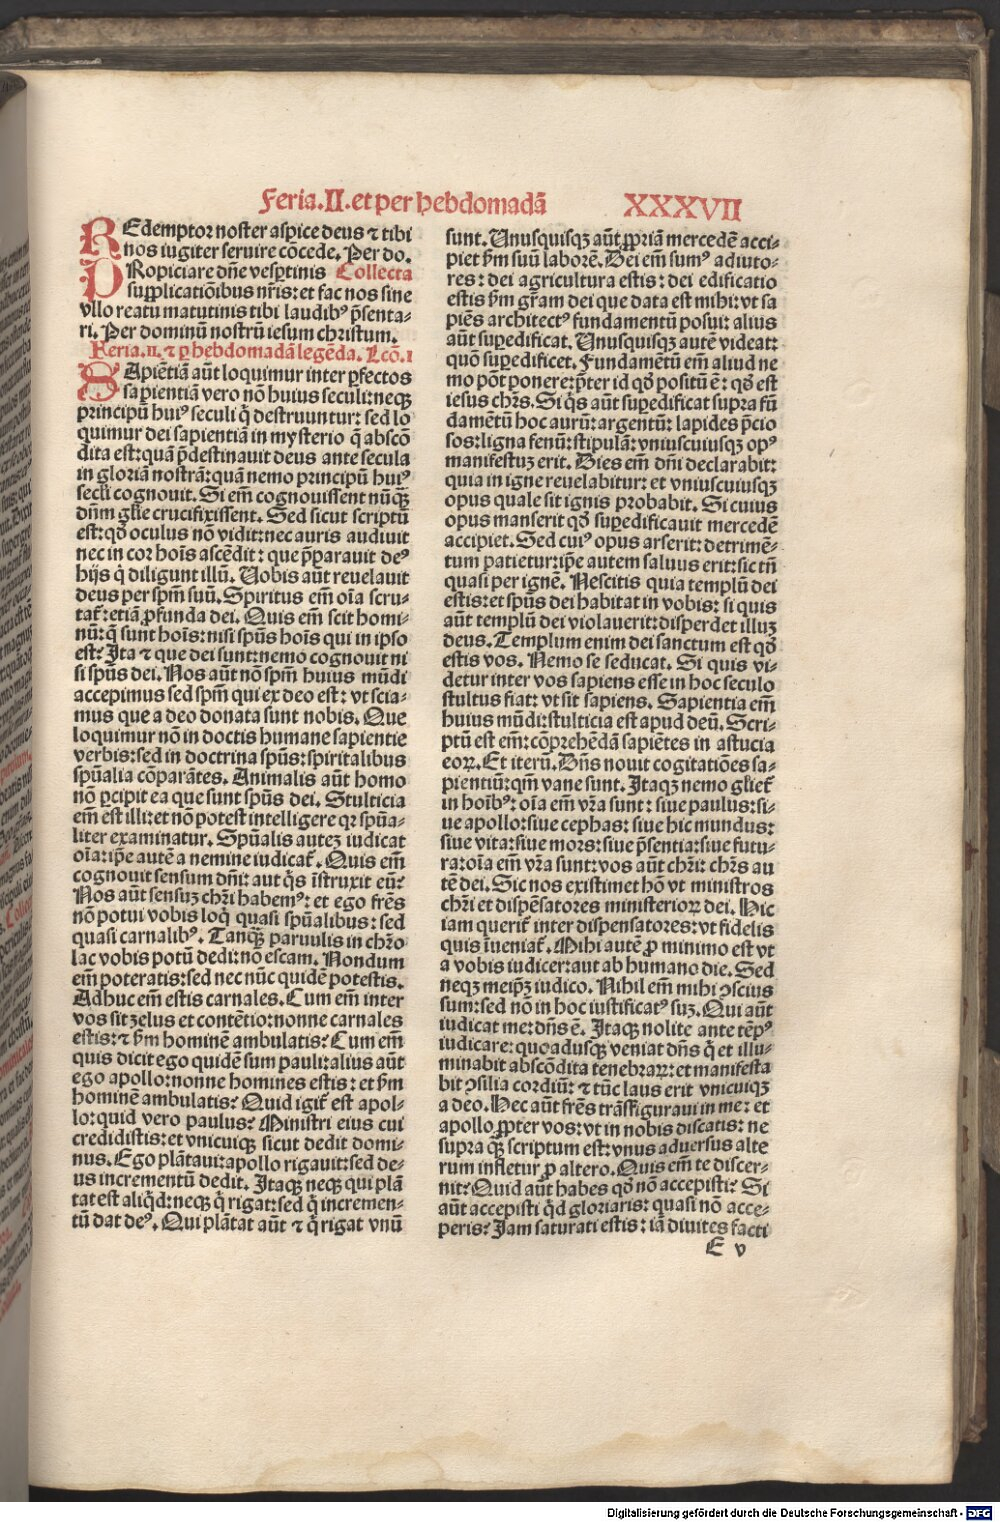 Feria.II.et per hebdomadā XXXVII
REdemptor noster aspice deus ⁊ tibi
nos iugiter seruire cōcede. Per do.
PRopiciare dn̄e vesp̱tinis Collecta
supplicatiōibus nr̄is: et fac nos sine
vllo reatu matutinis tibi laudibꝰ p̄senta-
ri. Per dominū nostrū iesum christum.
Feria.ii.⁊ ꝑ hebdomadā legēda. Lcō.i
SApiētiā aūt loquimur inter ꝑfectos
sapientiā vero nō huius seculi: neqꝫ
principū huiꝰ seculi q̄ destruuntur: sed lo
quimur dei sapientiā in mysterio q̄ abscō
dita est: quā p̄destinauit deus ante secula
in gloriā nostrā: quā nemo principū huiꝰ
secl̄i cognouit. Si em̄ cognouissent nūq̄ꝫ
dn̄m gl̄ie crucifixissent. Sed sicut scriptū
est: qd̄ oculus nō vidit: nec auris audiuit
nec in cor hoīs ascēdit: que p̄parauit deꝰ
hijs q̇ diligunt illū. Uobis aūt reuelauit
deus per spm̄ suū. Spiritus em̄ oīa scru-
tat᷑: etiā ꝓfunda dei. Quis em̄ scit homi-
nū: q̄ sunt hoīs: nisi spūs hoīs qui in ipso
est? Ita ⁊ que dei sunt: nemo cognouit ni
si spūs dei. Nos aūt nō spm̄ huius mūdi
accepimus sed spm̄ qui ex deo est: vt scia-
mus que a deo donata sunt nobis. Que
loquimur nō in doctis humane sapientie
verbis: sed in doctrina spūs: spiritalibus
spūalia cōparātes. Animalis aūt homo
nō ꝑcipit ea que sunt spūs dei. Stulticia
em̄ est illi: et nō potest intelligere qꝛ spūa-
liter examinatur. Spūalis auteꝫ iudicat
oīa: ip̄e autē a nemine iudicat᷑. Quis em̄
cognouit sensum dn̄i: aut q̇s īstruxit eū?
Nos aūt sensuꝫ chr̄i habemꝰ: et ego fr̄es
nō potui vobis loq̇ quasi spūalibus: sed
quasi carnalibꝰ. Tanq̄ꝫ paruulis in chr̄o
lac vobis potū dedi: nō escam. Nondum
em̄ poteratis: sed nec nūc quidē potestis.
Adhuc em̄ estis carnales. Cum em̄ inter
vos sit zelus et contētio: nonne carnales
estis: ⁊ ẜm hominē ambulatis? Cum em̄
quis dicit ego quidē sum pauli: alius aūt
ego apollo: nonne homines estis: et ẜm
hominē ambulatis? Quid igit᷑ est apol-
lo: quid vero paulus? Ministri eius cui
credidistis: et vnicuiqꝫ sicut dedit domi-
nus. Ego plātaui: apollo rigauit: sed de-
us incrementū dedit. Itaqꝫ neqꝫ qui plā
tat est aliq̇d: neqꝫ q̇ rigat: sed q̇ incremen-
tū dat deꝰ. Qui plātat aūt ⁊ q̇ rigat vnū
sunt. Unusquisqꝫ aūt ꝓpriā mercedē acci-
piet ẜm suū laborē. Dei em̄ sumꝰ adiuto-
res: dei agricultura estis: dei edificatio
estis ẜm gr̄am dei que data est mihi: vt sa
piēs architectꝰ fundamentū posui: alius
aūt suꝑedificat. Unusquisqꝫ autē videat:
quō suꝑedificet. Fundamētū em̄ aliud ne
mo pōt ponere: p̄ter id qd̄ positū ē: qd̄ est
iesus chr̄s. Si q̇s aūt suꝑedificat supra fū
damētū hoc aurū: argentū: lapides p̄cio
sos: ligna fenū: stipulā: vniuscuiusqꝫ opꝰ
manifestuꝫ erit. Dies em̄ dn̄i declarabit:
quia in igne reuelabitur: et vniuscuiusqꝫ
opus quale sit ignis probabit. Si cuius
opus manserit qd̄ suꝑedificauit mercedē
accipiet. Sed cuiꝰ opus arserit: detrimē-
tum patietur: ip̄e autem saluus erit: sic tn̄
quasi per ignē. Nescitis quia templū dei
estis: et spūs dei habitat in vobis: si quis
aūt templū dei violauerit: disperdet illuꝫ
deus. Templum enim dei sanctum est qd̄
estis vos. Nemo se seducat. Si quis vi-
detur inter vos sapiens esse in hoc seculo
stultus fiat: vt sit sapiens. Sapientia em̄
huius mūdi: stulticia est apud deū. Scri-
ptū est em̄: cōprehēdā sapiētes in astucia
eoꝝ. Et iterū. Dn̄s nouit cogitatiōes sa-
pientiū: qm̄ vane sunt. Itaqꝫ nemo gl̄iet᷑
in hoībꝰ: oīa em̄ vr̄a sunt: siue paulus: si-
ue apollo: siue cephas: siue hic mundus:
siue vita: siue mors: siue p̄sentia: siue futu-
ra: oīa em̄ vr̄a sunt: vos aūt chr̄i: chr̄s au
tē dei. Sic nos existimet hō vt ministros
chr̄i et dispēsatores ministerioꝝ dei. Hic
iam querit᷑ inter dispensatores: vt fidelis
quis īueniat᷑. Mihi autē ꝓ minimo est vt
a vobis iudicer: aut ab humano die. Sed
neqꝫ meip̄ꝫ iudico. Nihil em̄ mihi ꝯscius
sum: sed nō in hoc iustificatꝰ suꝫ. Qui aūt
iudicat me: dn̄s ē. Itaqꝫ nolite ante tēpꝰ
iudicare: quoadusqꝫ veniat dn̄s q̇ et illu-
minabit abscōdita tenebraꝝ: et manifesta
bit ꝯsilia cordiū: ⁊ tūc laus erit vnicuiqꝫ
a deo. Hec aūt fr̄es trāsfiguraui in me: et
apollo ꝓpter vos: vt in nobis discatis: ne
supra q̄ꝫ scriptum est: vnus aduersus alte
rum infletur ꝓ altero. Quis em̄ te discer-
nit? Quid aūt habes qd̄ nō accepisti? Si
aūt accepisti q̇d gloriaris: quasi nō acce-
peris? Iam saturati estis: iā diuites facti
E v
Digitalisierung gefördert durch die Deutsche Forschungsgemeinschaft - DFG